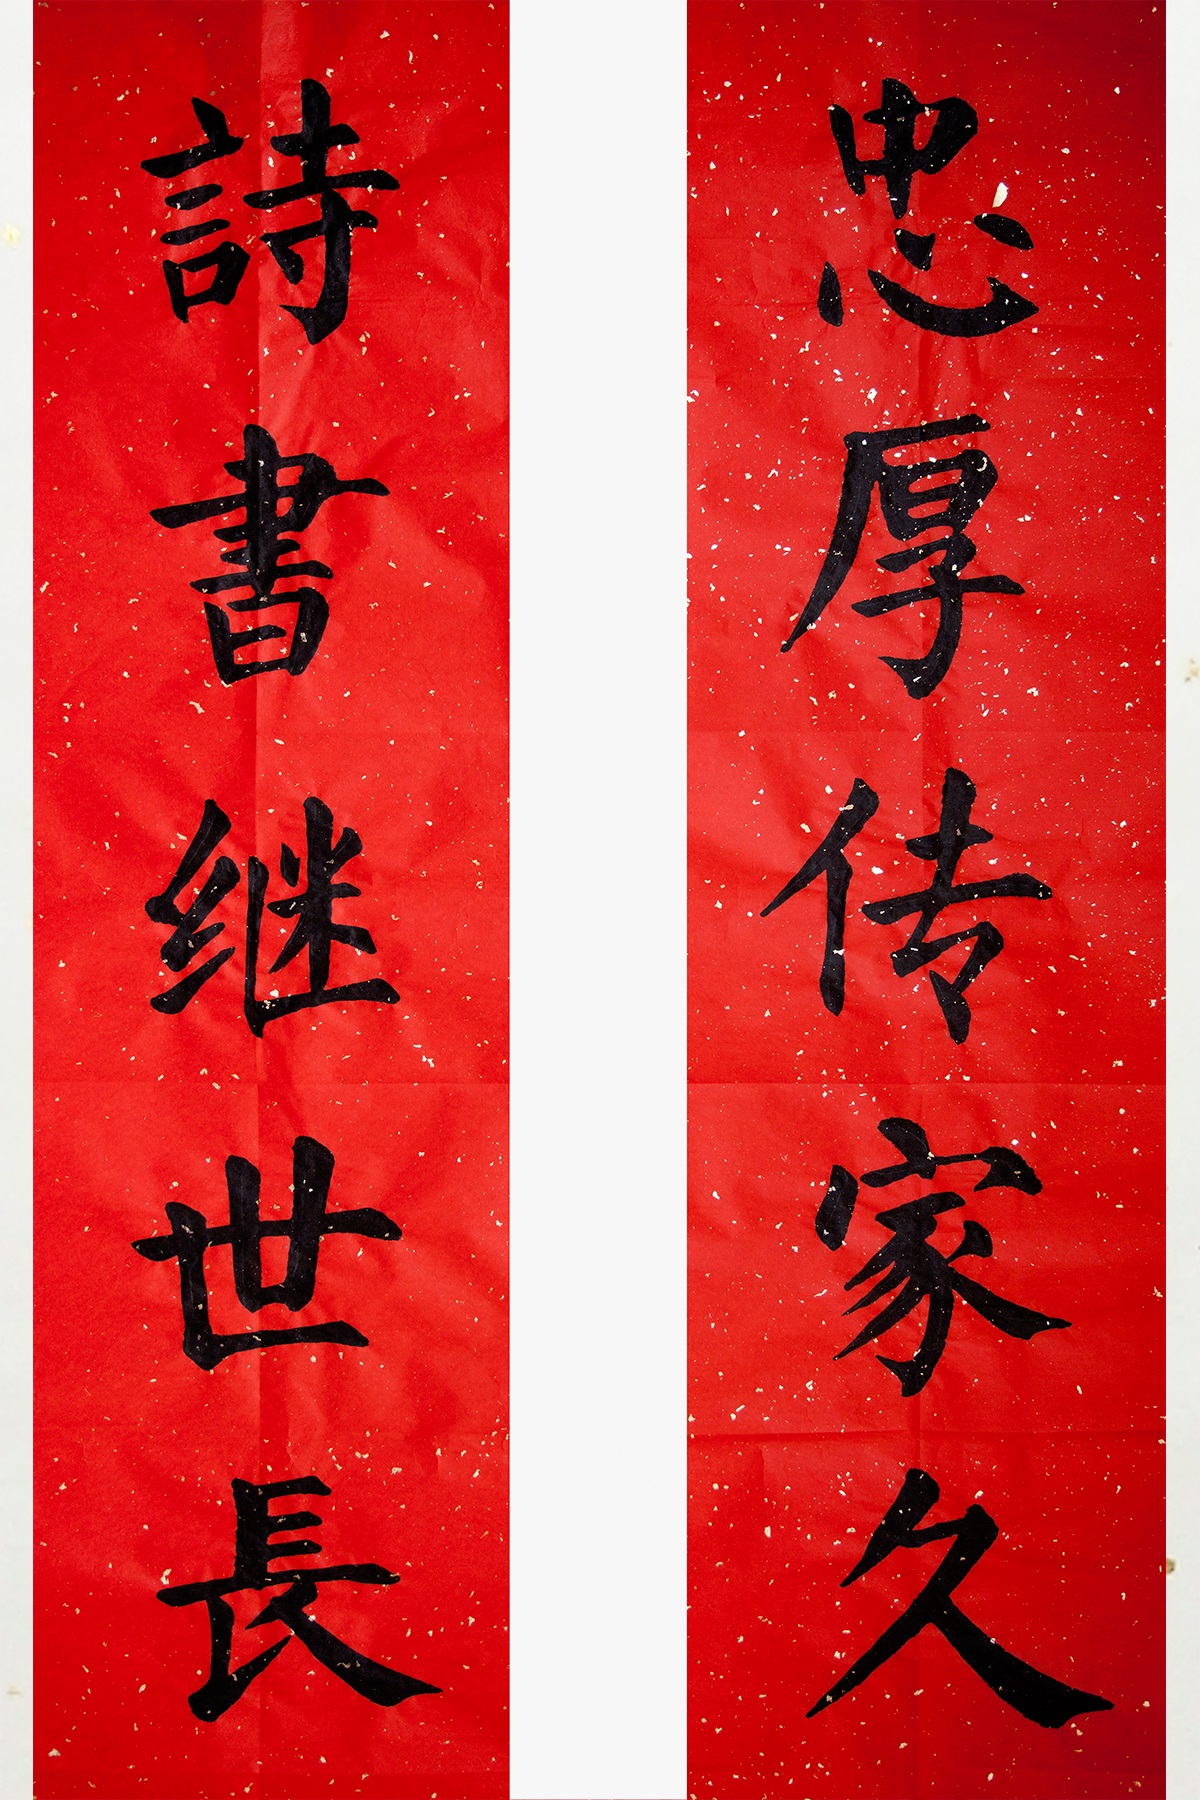 忠厚传家久
詩書继世長